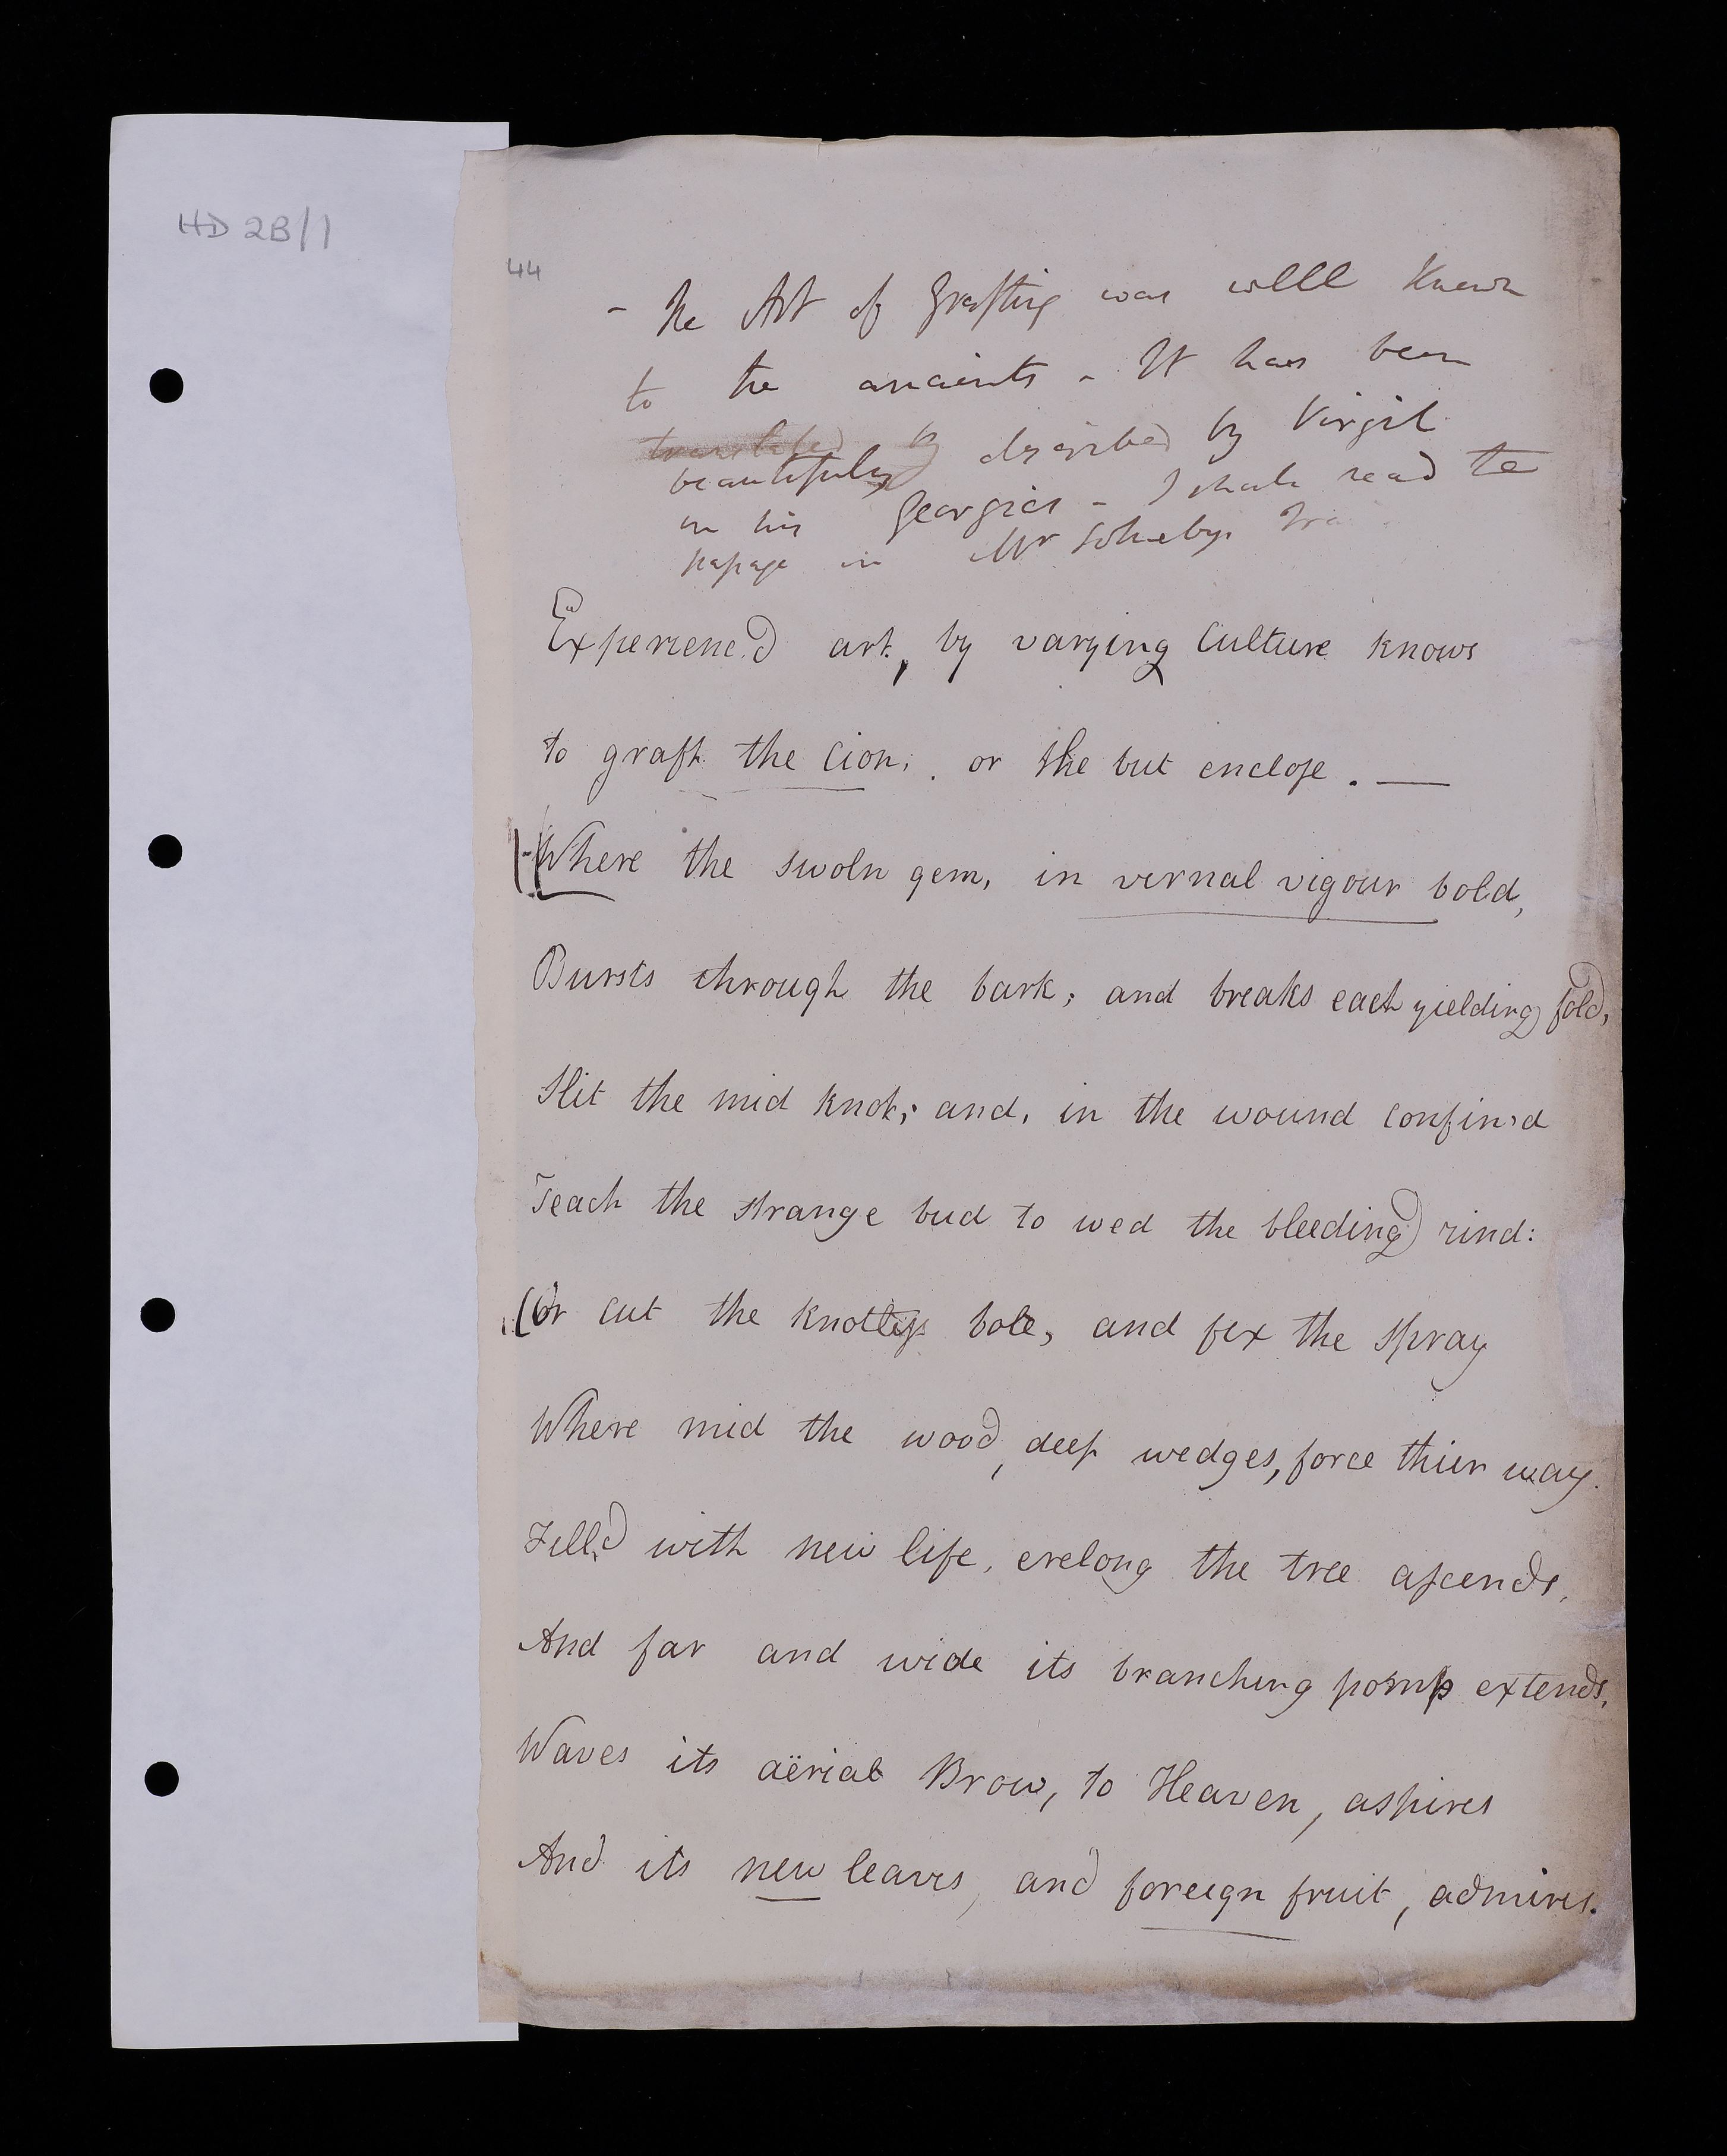 HD 2B/1
44
- The Art of Grafting was well known
to the ancients - It has been
translated by described by Virgil
beautifully
in his Georgics - I shall read the
passage in Mr Sothebys Tra
Experienc'd art, by varying Culture knows
to graft the Cion, or the but enclose. —
Where the swoln gem, in vernal vigour bold,
Bursts through the bark, and breaks each yielding fold,
Slit the mid knot, and, in the wound confin'd
Teach the strange bud to wed the bleeding rind:
Or cut the knotless bole, and fix the spray
Where mid the wood, deep wedges, force thier way.
Fill'd with new life, erelong the tree ascends,
And far and wide its branching pomp extends,
Waves its aërial Brow, to Heaven, aspires
And its new leaves, and foreign fruit, admires.